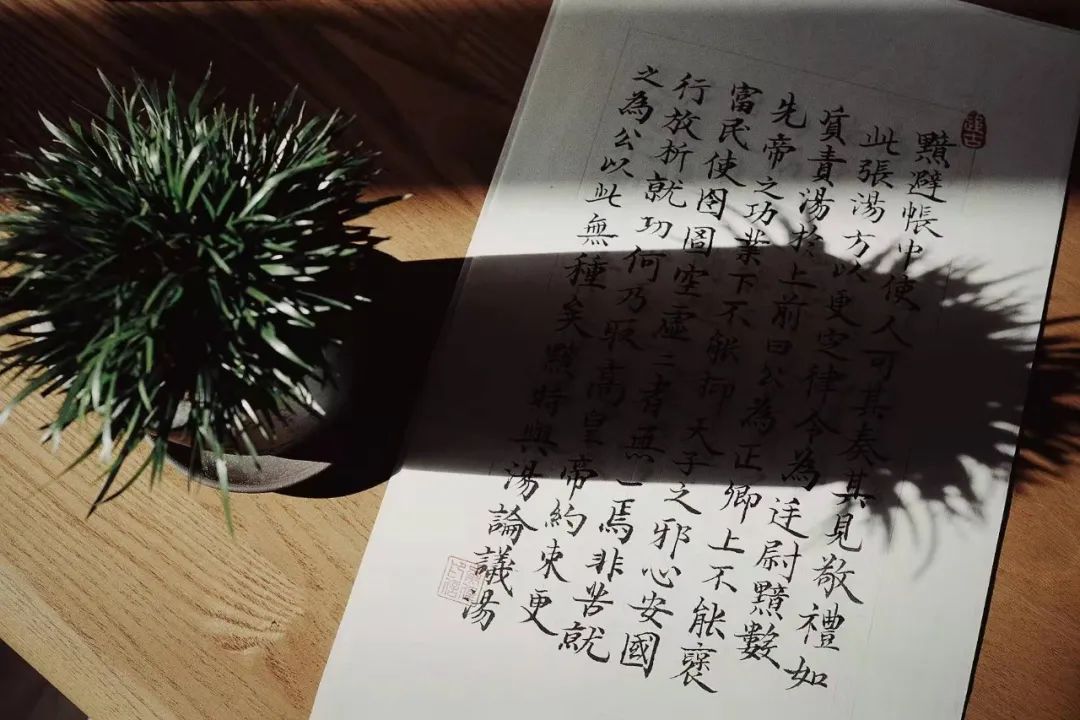 黯避帳中使人可其奏其見敬禮如
此張湯方以更定律令為廷尉黯數
質責湯於上前曰公為正卿上不能褒
先帝之功業下不能抑天子之邪心安國
富民使囹圄空虛二者無一焉非苦就
行放析就功何乃取高皇帝約束更
之為公以此無種矣黯時與湯論議湯